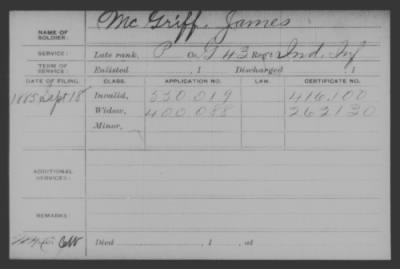 NAME OF SOLDIER: Mc Griff, James
SERVICE: Late rank, P Co. G 43 Reg't Ind. Inf
TERM OF SERVICE: Enlisted , 1 Discharged 1
DATE OF FILING. CLASS. APPLICATION NO. LAW. CERTIFICATE NO.
1885 Sept 18 Invalid, 550.019 416.100
Widow, 400,088 262130
Minor,
ADDITIONAL SERVICES:
REMARKS:
Died , 1 , at